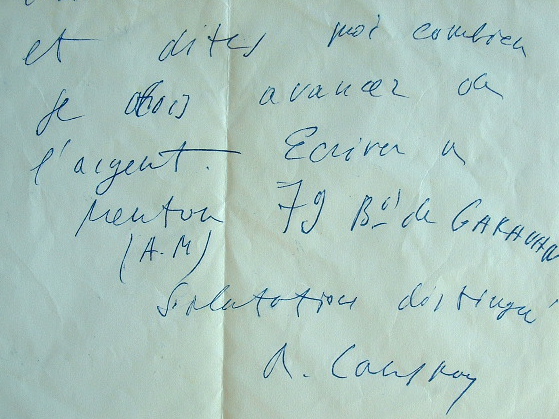 et dites moi combien
je dois avancer de
l'argent. Ecrivez a
Menton 79 Bd de GARAVAN
(A.M)
Salutation distingué
R.